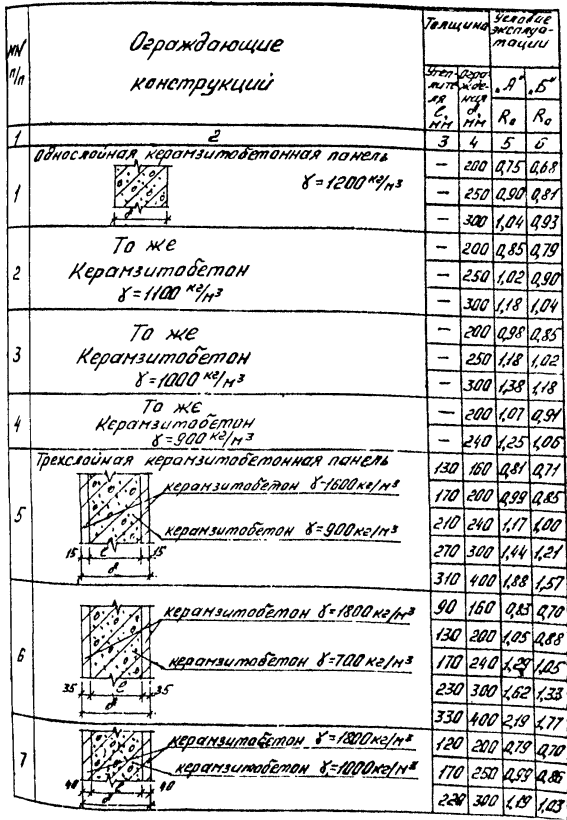 NN п/п
Ограждающие
конструкций
Толщина
Условие эксплуатации
Утеплителя ℓ, мм
Ограждения δ, мм
„А"
„Б"
R₀
R₀
1 2 3 4 5 6
Однослойная керамзитобетонная панель
γ=1200 кг/м³
δ
1
— 200 0,75 0,68
— 250 0,90 0,81
— 300 1,04 0,93
То же
Керамзитобетон
γ=1100 кг/м³
2
— 200 0,85 0,79
— 250 1,02 0,90
— 300 1,18 1,04
То же
Керамзитобетон
γ=1000 кг/м³
3
— 200 0,98 0,85
— 250 1,18 1,02
— 300 1,38 1,18
То же
Керамзитобетон
γ=900 кг/м³
4
— 200 1,07 0,91
— 240 1,25 1,06
Трехслойная керамзитобетонная панель
керамзитобетон γ-1600 кг/м³
керамзитобетон γ=900 кг/м³
15 ℓ 15
δ
5
130 160 0,81 0,71
170 200 0,99 0,85
210 240 1,17 1,00
270 300 1,44 1,21
310 400 1,88 1,57
керамзитобетон γ=1800 кг/м³
керамзитобетон γ=700 кг/м³
35 ℓ 35
δ
6
90 160 0,83 0,70
130 200 1,05 0,88
170 240 1,29 1,05
230 300 1,62 1,33
330 400 2,19 1,77
керамзитобетон γ=1800 кг/м³
керамзитобетон γ=1000 кг/м³
40 ℓ 40
δ
7
120 200 0,79 0,70
170 250 0,99 0,86
220 300 1,19 1,03